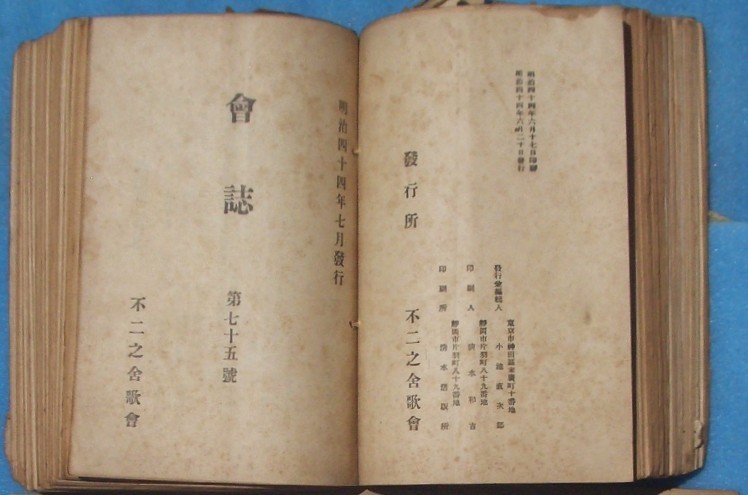 明治四十四年六月十七日印刷
明治四十四年六月二十日發行
發行兼編輯人
東京市神田區末廣町十番地
小 次郎
印刷人
靜岡市片羽町八十九番地
清水
印刷所
靜岡市片羽町八十九番地
清水活版所
發行所
不二之舍歌會
明治四十四年七月發行
會誌
第七十五號
不二之舍歌會